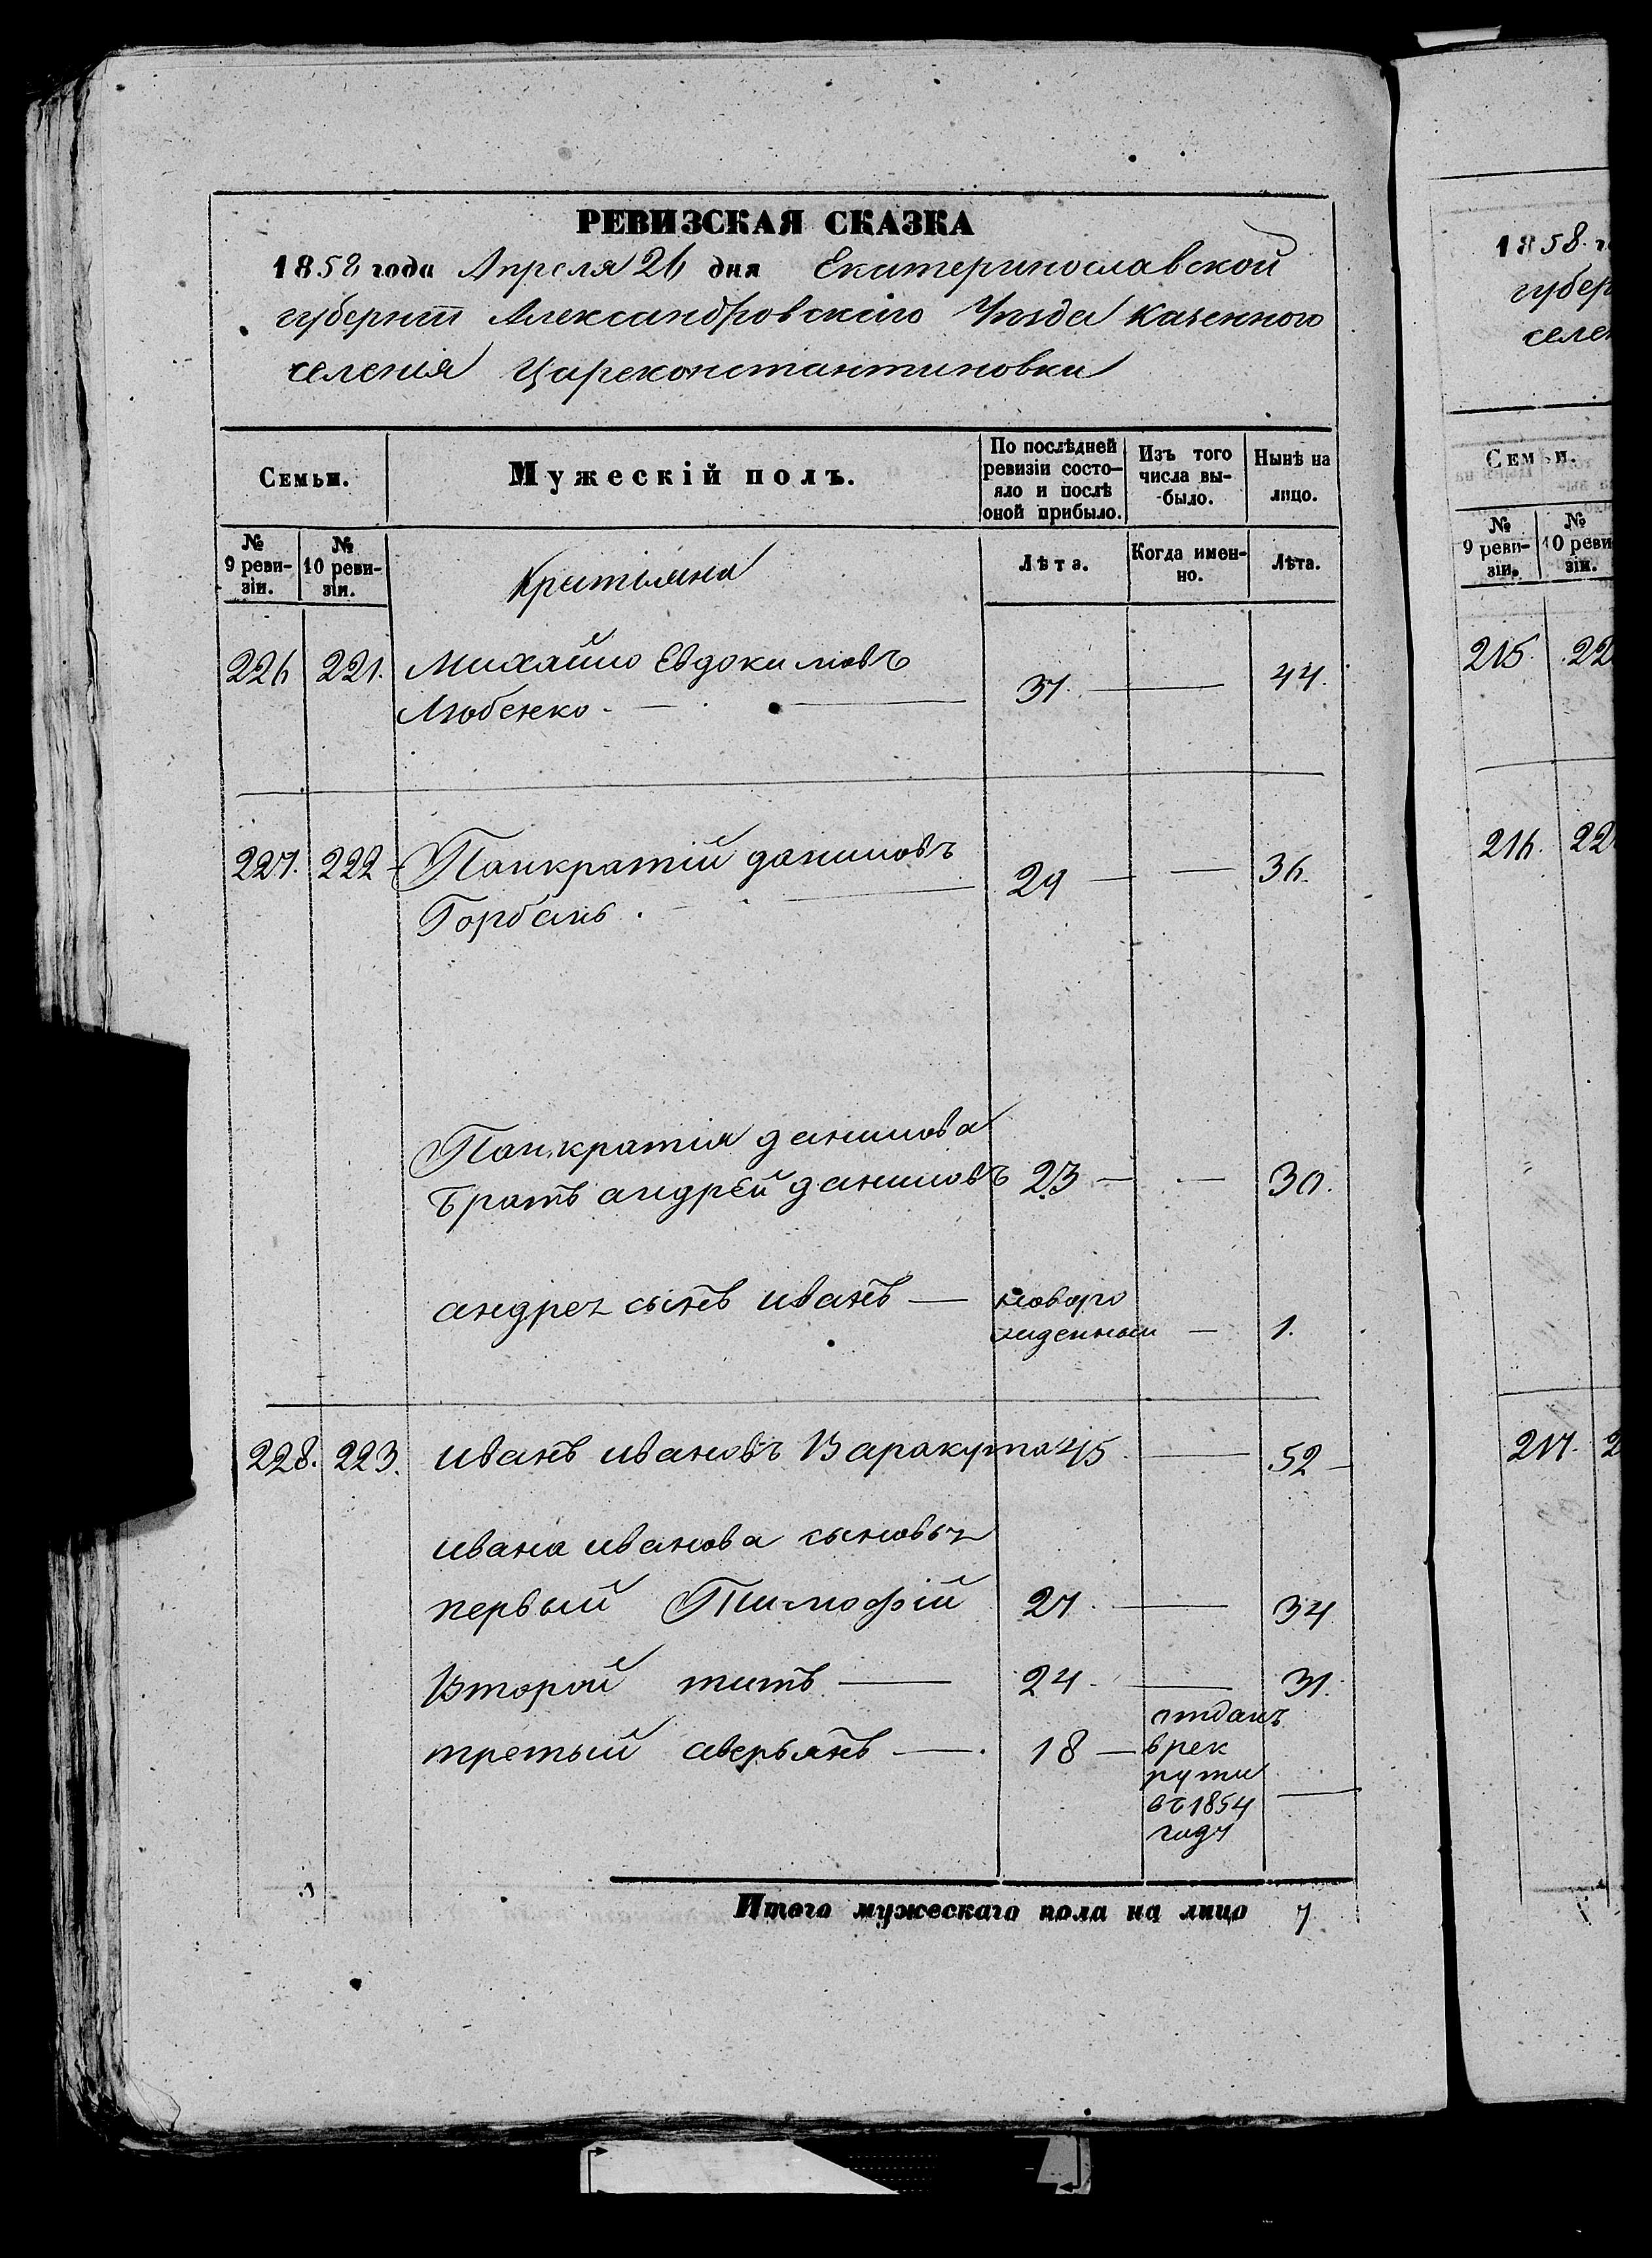 РЕВИЗСКАЯ СКАЗКА
1858 года Апреля 26 дня Екатеринославской
губерніи Александровскаго Уѣзда казенного
селенія Цареконстантиновки
Семьи.
Мужескій полъ.
По послѣдней ревизіи состо-
яло и послѣ оной прибыло.
Изъ того числа вы-
было.
Нынѣ на лицо.
№ 9 реви-
зіи.
№ 10 реви-
зіи.
Лѣта.
Когда имен-
но.
Лѣта.
226 221. Михайло Евдокимовъ
Любенко. — 37. — 44.
227. 222 Панкратій даниловъ
Горбань. — 29 — — 36.
Панкратія данилова
братъ андрей даниловъ 23 — — 30.
андрея сынъ иванъ — новоро
жденный — 1.
228. 223. иванъ ивановъ Варакута 45. — 52 —
ивана иванова сыновья
первый Тимофій 27. — 34
Второй титъ — 24. — 31.
третый аверьянъ — 18 — отданъ
в рек
руты
въ 1854
году —
Итого мужескаго пола на лицо 7
1858. г
губер
селен
Семьи.
№ 9 реви-
зіи.
№ 10 реви
зіи.
215. 22
216. 22
217. 2